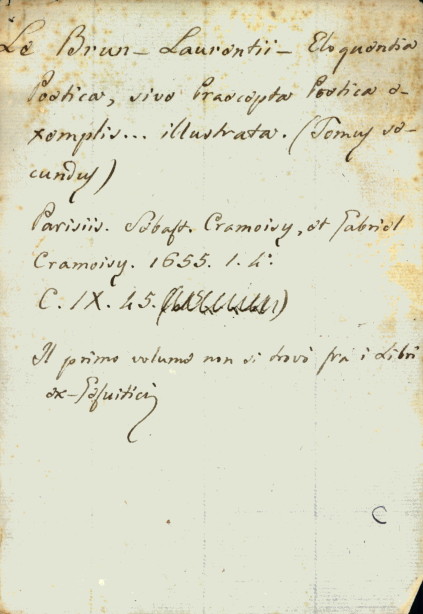 Le Brun - Laurentii - Eloquentia
Poetica, sive Praecepta Poetica e-
xemplis... illustrata. (Tomus se-
cundus)
Parisiis. Sebast. Cramoisy, et Gabriel
Cramoisy. 1655. 1. 4°.
C. IX. 45.
Il primo volume non si trovò fra i Libri
ex-Gesuitici
C